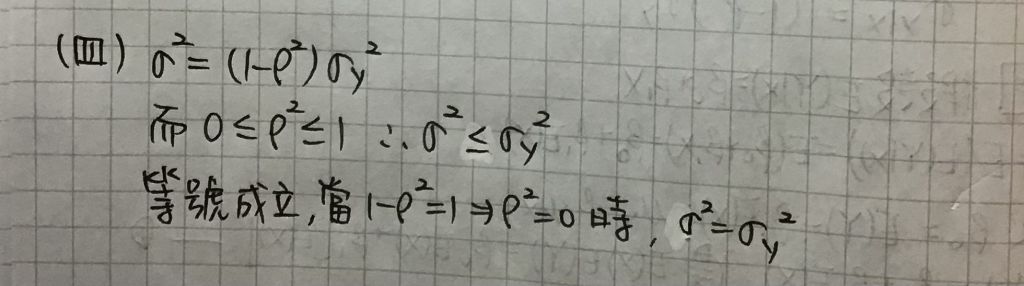 (三) σ² = (1-ρ²) σy²
而 0 ≤ ρ² ≤ 1 ∴ σ² ≤ σy²
等號成立, 當 1-ρ² = 1 ⇒ ρ² = 0 時, σ² = σy²